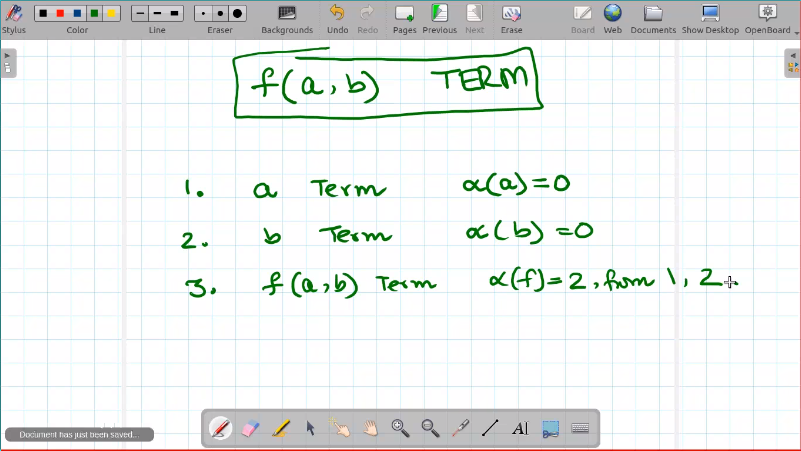 Stylus Color Line Eraser Backgrounds Undo Redo Pages Previous Next Erase Board Web Documents Show Desktop OpenBoard
f(a, b) TERM
1. a Term α(a)=0
2. b Term α(b)=0
3. f(a,b) Term α(f)=2, from 1, 2.
Document has just been saved...